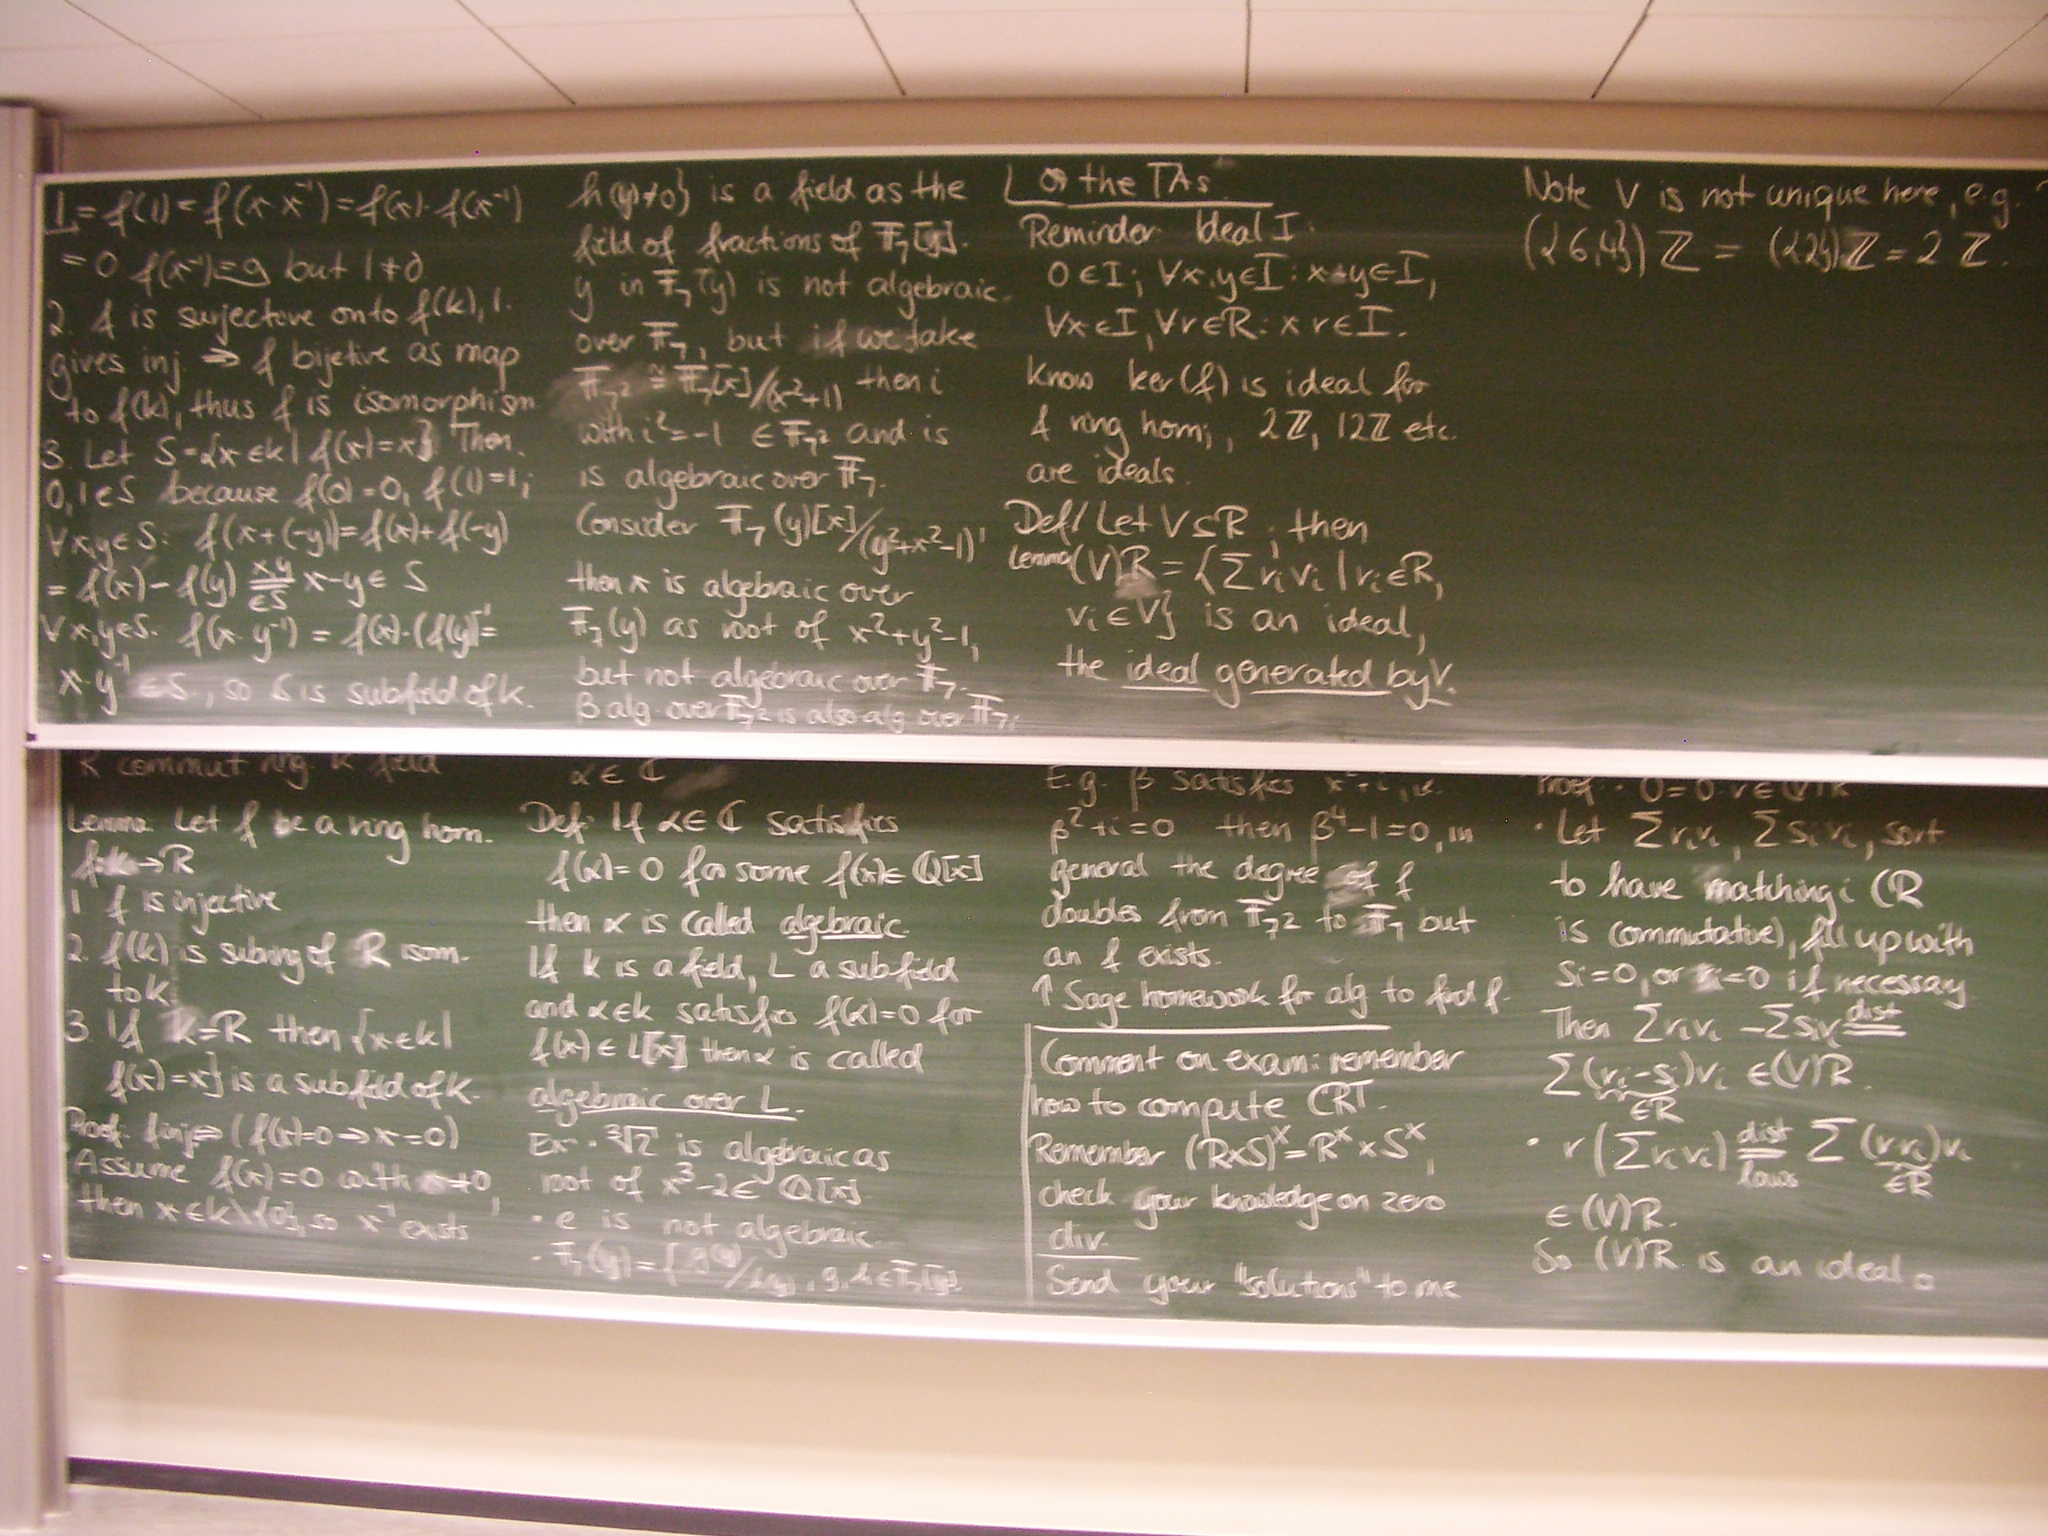 1 = f(1) = f(x·x⁻¹) = f(x)·f(x⁻¹)
= 0 f(x⁻¹) = 0 but 1≠0
2. f is surjective onto f(k), 1.
gives inj ⇒ f bijetive as map
to f(k), thus f is isomorphism
3. Let S={x∈k| f(x)=x} Then
0,1∈S because f(0)=0, f(1)=1;
∀x,y∈S: f(x+(-y))=f(x)+f(-y)
= f(x) - f(y) x,y∈S = x-y ∈ S
∀x,y∈S: f(x·y⁻¹) = f(x)·(f(y))⁻¹=
x·y⁻¹ ∈S, so S is subfield of k.
h(y)≠0} is a field as the
field of fractions of F₇[y].
y in F₇(y) is not algebraic
over F₇, but if we take
F₇² ≅ F₇[x]/(x²+1) then i
with i²=-1 ∈ F₇² and is
is algebraic over F₇.
Consider F₇(y)[x]/(y²+x²-1),
then x is algebraic over
F₇(y) as root of x²+y²-1,
but not algebraic over F₇.
β alg. over F₇² is also alg over F₇;
the TAs
Reminder: Ideal I:
0∈I; ∀x,y∈I: x+y∈I,
∀x∈I, ∀r∈R: x r∈I.
Know ker(f) is ideal for
f ring hom;, 2ℤ, 12ℤ etc.
are ideals.
Def/ Let V⊆R; then
Lemma (V)R = {∑ rᵢ vᵢ | rᵢ∈R,
vᵢ∈V} is an ideal,
the ideal generated by V.
Note V is not unique here, e.g.
({6,4}) ℤ = ({2})ℤ = 2 ℤ.
R commut ring. k field
Lemma. Let f be a ring hom.
f:k→R
1 f is injective
2. f(k) is subring of R isom.
to k
3. If k=R then {x∈k|
f(x)=x} is a subfield of k.
Proof: f inj ⇔ (f(x)=0 → x=0)
Assume f(x)=0 with x≠0,
then x∈k\{0}, so x⁻¹ exists
α∈ ℂ
Def: If α∈ ℂ satisfies
f(α)=0 for some f(x)∈ ℚ[x]
then α is called algebraic.
If k is a field, L a subfield
and α∈k satisfies f(α)=0 for
f(x)∈ L[x] then α is called
algebraic over L.
Ex · ³√2 is algebraic as
root of x³-2∈ ℚ[x].
· e is not algebraic.
· F₇(y)={g(y)/h(y), g,h∈F₇[y],
E.g. β satisfies x²+i, i.e.
β²+i=0 then β⁴-1=0, in
general the degree of f
doubles from F₇² to F₇ but
an f exists.
↑ Sage homework for alg to find f.
Comment on exam: remember
how to compute CRT.
Remember (R×S)ˣ=Rˣ×Sˣ,
check your knowledge on zero
div.
Send your "solutions" to me
Proof: · 0=0·v∈(V)R
· Let ∑rᵢvᵢ, ∑sᵢvᵢ, sort
to have matching i (R
is commutative), fill up with
sᵢ=0, or rᵢ=0 if necessary.
Then ∑rᵢvᵢ - ∑sᵢvᵢ dist=
∑(rᵢ-sᵢ)vᵢ ∈(V)R.
∈R
· r(∑rᵢvᵢ) dist laws = ∑(r rᵢ)vᵢ
∈R
∈ (V)R.
So (V)R is an ideal □